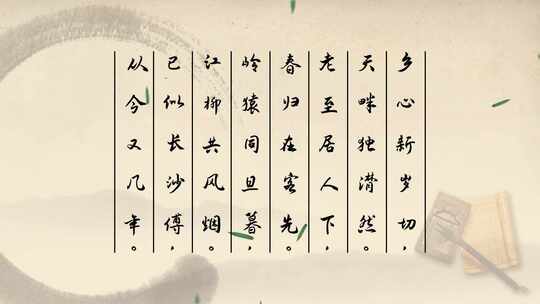 乡心新岁切，
天畔独潸然。
老至居人下，
春归在客先。
岭猿同旦暮，
江柳共风烟。
已似长沙傅，
从今又几年。